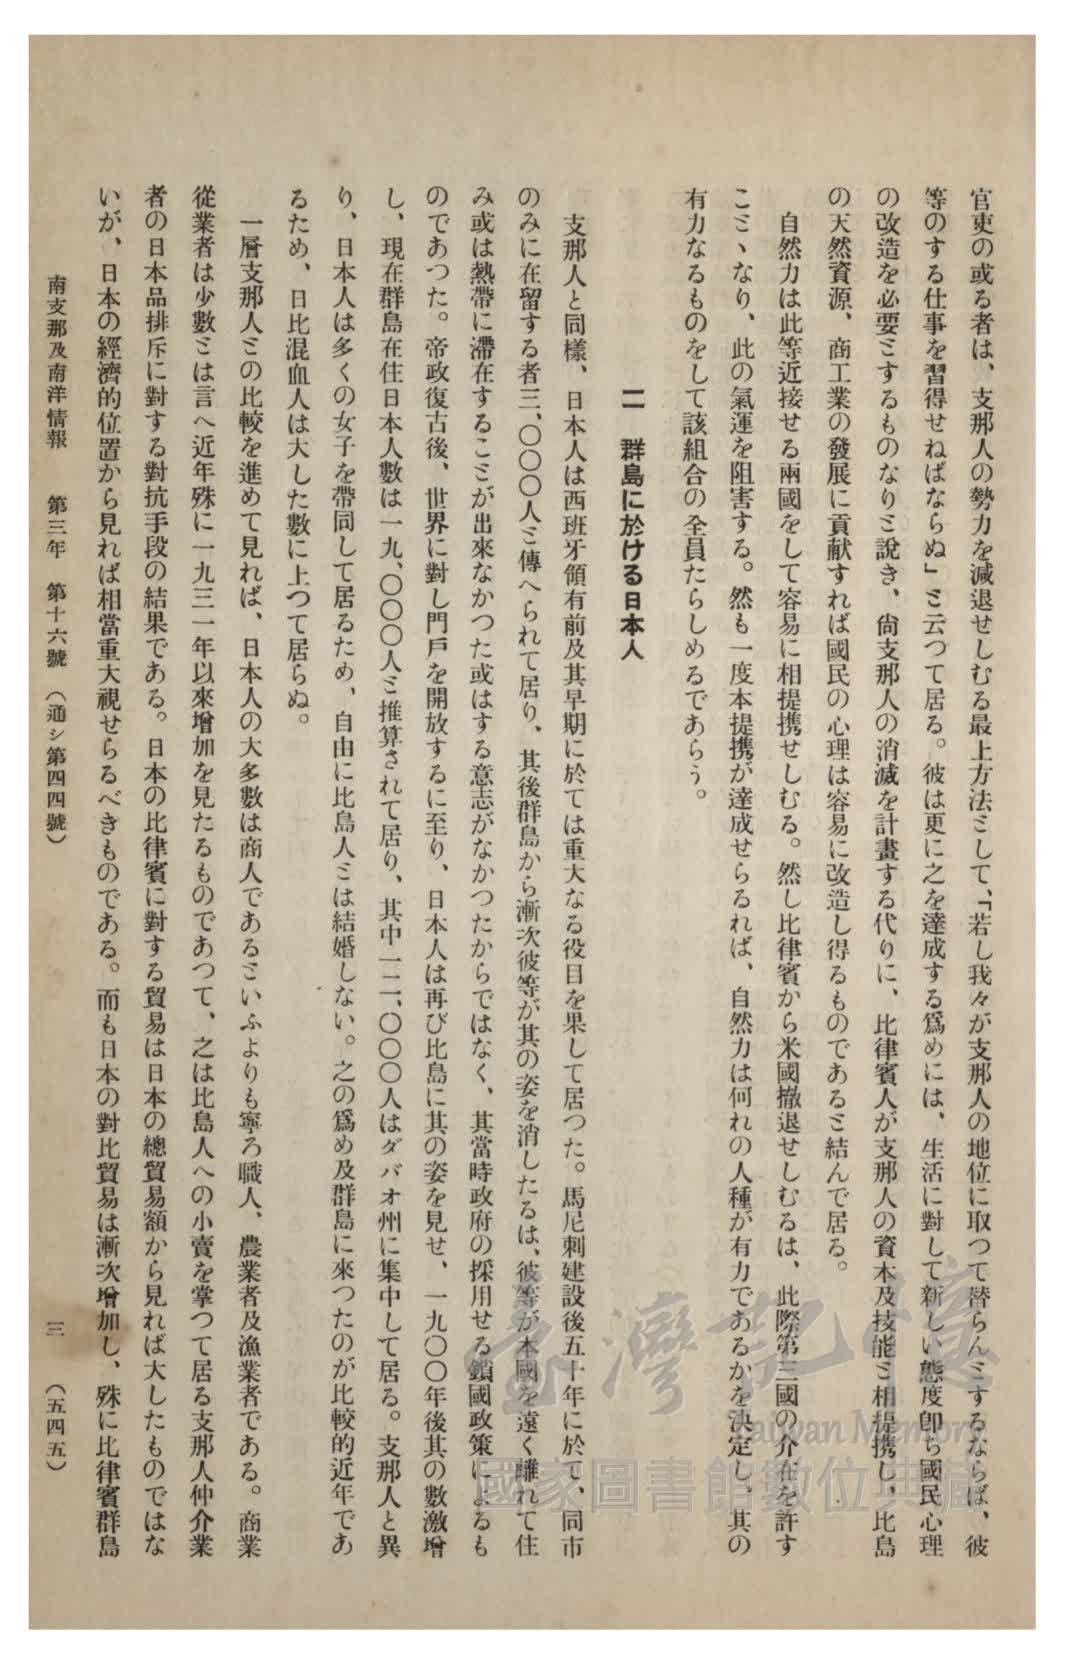 官吏の或る者は、支那人の勢力を減退せしむる最上方法ミして、「若し我々が支那人の地位に取つて替らんミするならば、彼
等のする仕事を習得せねばならぬ」ミ云つて居る。彼は更に之を達成する爲めには、生活に對して新しい態度卽ち國民心理
の改造を必要ミするものなりミ說き、尙支那人の消滅を計畫する代りに、比律賓人が支那人の資本及技能ミ相提携し、比島
の天然資源、商工業の發展に貢献すれば國民の心理は容易に改造し得るものであるミ結んで居る。
自然力は此等近接せる兩國をして容易に相提携せしむる。然し比律賓から米國撤退せしむるは、此際第三國の介在を許す
こミヽなり、此の氣運を阻害する。然も一度本提携が達成せらるれば、自然力は何れの人種が有力であるかを決定し、其の
有力なるものをして該組合の全員たらしめるであらう。
二 群島に於ける日本人
支那人と同樣、日本人は西班牙領有前及其早期に於ては重大なる役目を果して居つた。馬尼剌建設後五十年に於て、同市
のみに在留する者三、〇〇〇人ミ傳へられて居り、其後群島から漸次彼等が其の姿を消したるは、彼等が本國を遠く離れて住
み或は熱帶に滯在するこミが出來なかつた或はする意志がなかつたからではなく、其當時政府の採用せる鎖國政策によるも
のであつた。帝政復古後、世界に對し門戶を開放するに至り、日本人は再び比島に其の姿を見せ、一九〇〇年後其の數激增
し、現在群島在住日本人數は一九、〇〇〇人ミ推算されて居り、其中一二、〇〇〇人はダバオ州に集中して居る。支那人と異
り、日本人は多くの女子を帶同して居るため、自由に比島人ミは結婚しない。之の爲め及群島に來つたのが比較的近年であ
るため、日比混血人は大した數に上つて居らぬ。
一層支那人ミの比較を進めて見れば、日本人の大多數は商人であるミいふよりも寧ろ職人、農業者及漁業者である。商業
從業者は少數ミは言へ近年殊に一九三一年以來增加を見たるものであつて、之は比島人への小賣を掌つて居る支那人仲介業
者の日本品排斥に對する對抗手段の結果である。日本の比律賓に對する貿易は日本の總貿易額から見れば大したものではな
いが、日本の經濟的位置から見れば相當重大視せらるべきものである。而も日本の對比貿易は漸次增加し、殊に比律賓群島
南支那及南洋情報 第三年 第十六號 (通シ第四四號) 三 (五四五)
臺灣記憶
Taiwan Memory
國家圖書館數位典藏